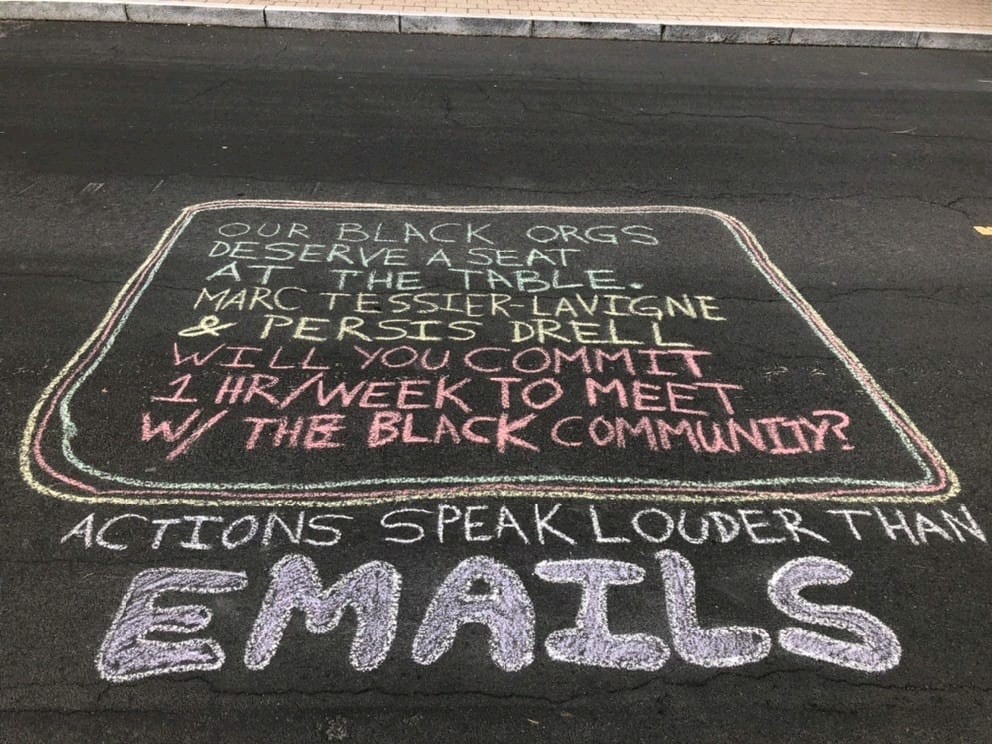 OUR BLACK ORGS
DESERVE A SEAT
AT THE TABLE.
MARC TESSIER-LAVIGNE
& PERSIS DRELL
WILL YOU COMMIT
1 HR/WEEK TO MEET
W/ THE BLACK COMMUNITY?
ACTIONS SPEAK LOUDER THAN
EMAILS